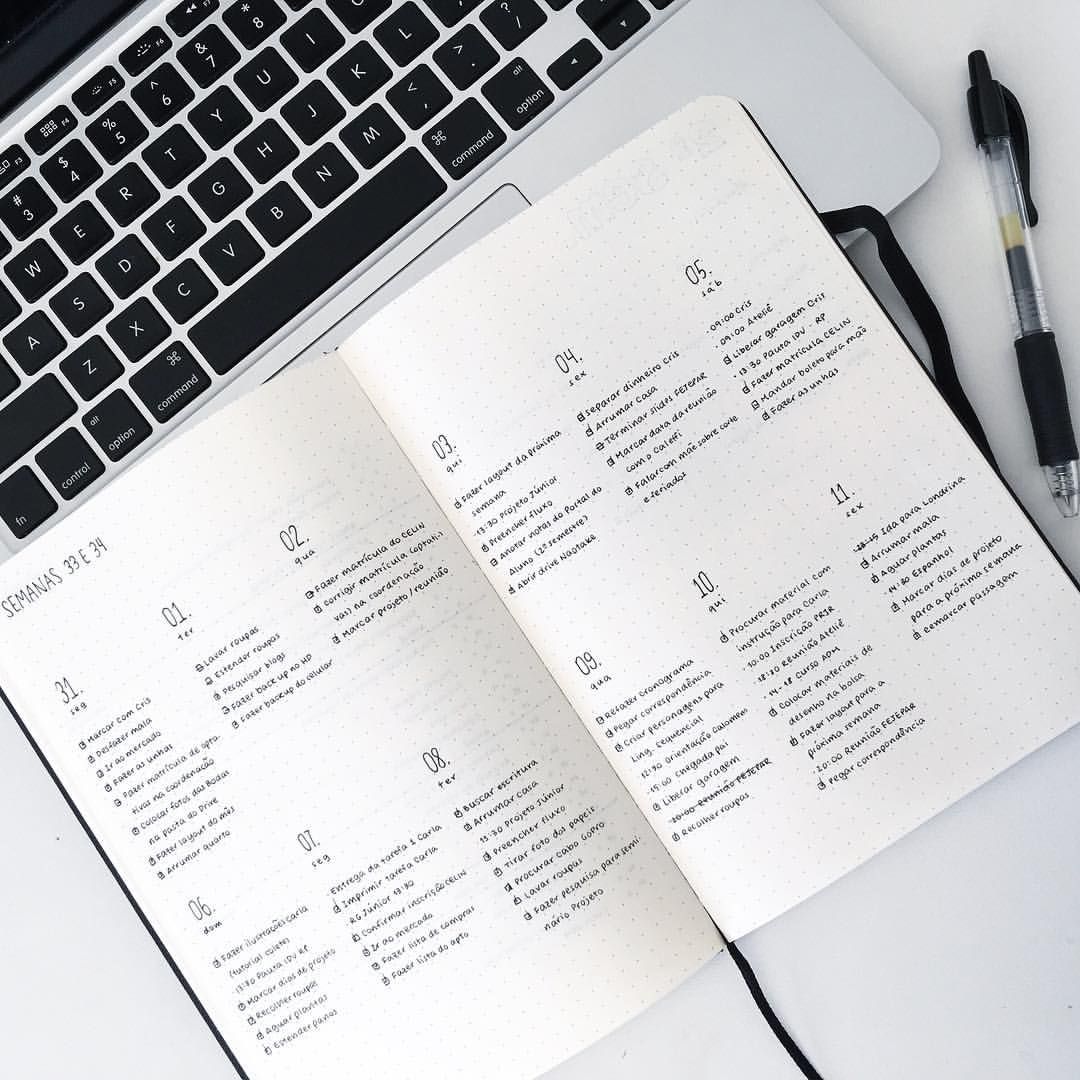 F3
F4
F5
F6
F7
# 3
$ 4
% 5
^ 6
& 7
* 8
W
E
R
T
Y
U
I
A
S
D
F
G
H
J
K
L
Z
X
C
V
B
N
M
< ,
> .
? /
fn
control
alt option
⌘ command
⌘ command
alt option
SEMANAS 33 E 34
31.
seg
Marcar com Cris
Desfazer mala
Ir ao mercado
Fazer as unhas
Fazer matrícula de opta-
tivas na coordenação
Colocar fotos das Bodas
na pasta do Drive
Fazer layout do mês
Arrumar quarto
01.
ter
Lavar roupas
Estender roupas
Pesquisar blogs
Fazer back up no HD
Fazer backup do celular
02.
qua
Fazer matrícula do CELIN
Corrigir matrícula (optati-
vas) na coordenação
Marcar projeto / reunião
03.
qui
Fazer layout da próxima
semana
13:30 Projeto Júnior
Preencher fluxo
Anotar notas do Portal do
Aluno (2º semestre)
Abrir drive
04.
sex
Separar dinheiro Cris
Arrumar casa
Terminar slides FEJEPAR
Marcar data da reunião
com o Caleffi
Falar com mãe sobre corte
e feriados
05.
sáb
09:00 Cris
09:00 Ateliê
Liberar garagem Cris
13:30 Pauta IDV - RP
Fazer matrícula CELIN
Mandar boleto para mão
Fazer as unhas
06.
dom
Fazer ilustrações Carla
(tutorial coletes
13:30 Pauta IDV RP
Marcar dias de projeto
Recolher roupas
Aguar plantas
Estender panos
07.
seg
Entrega da tarefa 1 Carla
Imprimir tarefa Carla
RG Júnior 17:30
Confirmar inscrição CELIN
Ir ao mercado
Fazer lista de comprar
Fazer lista do apto
08.
ter
Buscar escritura
Arrumar casa
13:30 Projeto Júnior
Preencher fluxo
Tirar foto dos papeis
Procurar cabo GoPro
Lavar roupas
Fazer pesquisa para semi-
nário Projeto
09.
qua
Refazer cronograma
Pegar correspondência
Criar personagens para
Ling. Sequencial
12:30 orientação
15:00 chegada pai
Liberar garagem
20:00 Reunião FEJEPAR
Recolher roupas
10.
qui
Procurar material com
instrução para Carla
10:00 Inscrição
12:30 Reunião Ateliê
14-18 Curso ADM
Colocar materiais de
desenho na bolsa
Fazer layout para a
próxima semana
20:00 Reunião FEJEPAR
Pegar correspondência
11.
sex
Ida para Londrina
Arrumar mala
Aguar plantas
14:30 Espanhol
Marcar dias de projeto
para a próxima semana
Remarcar passagem